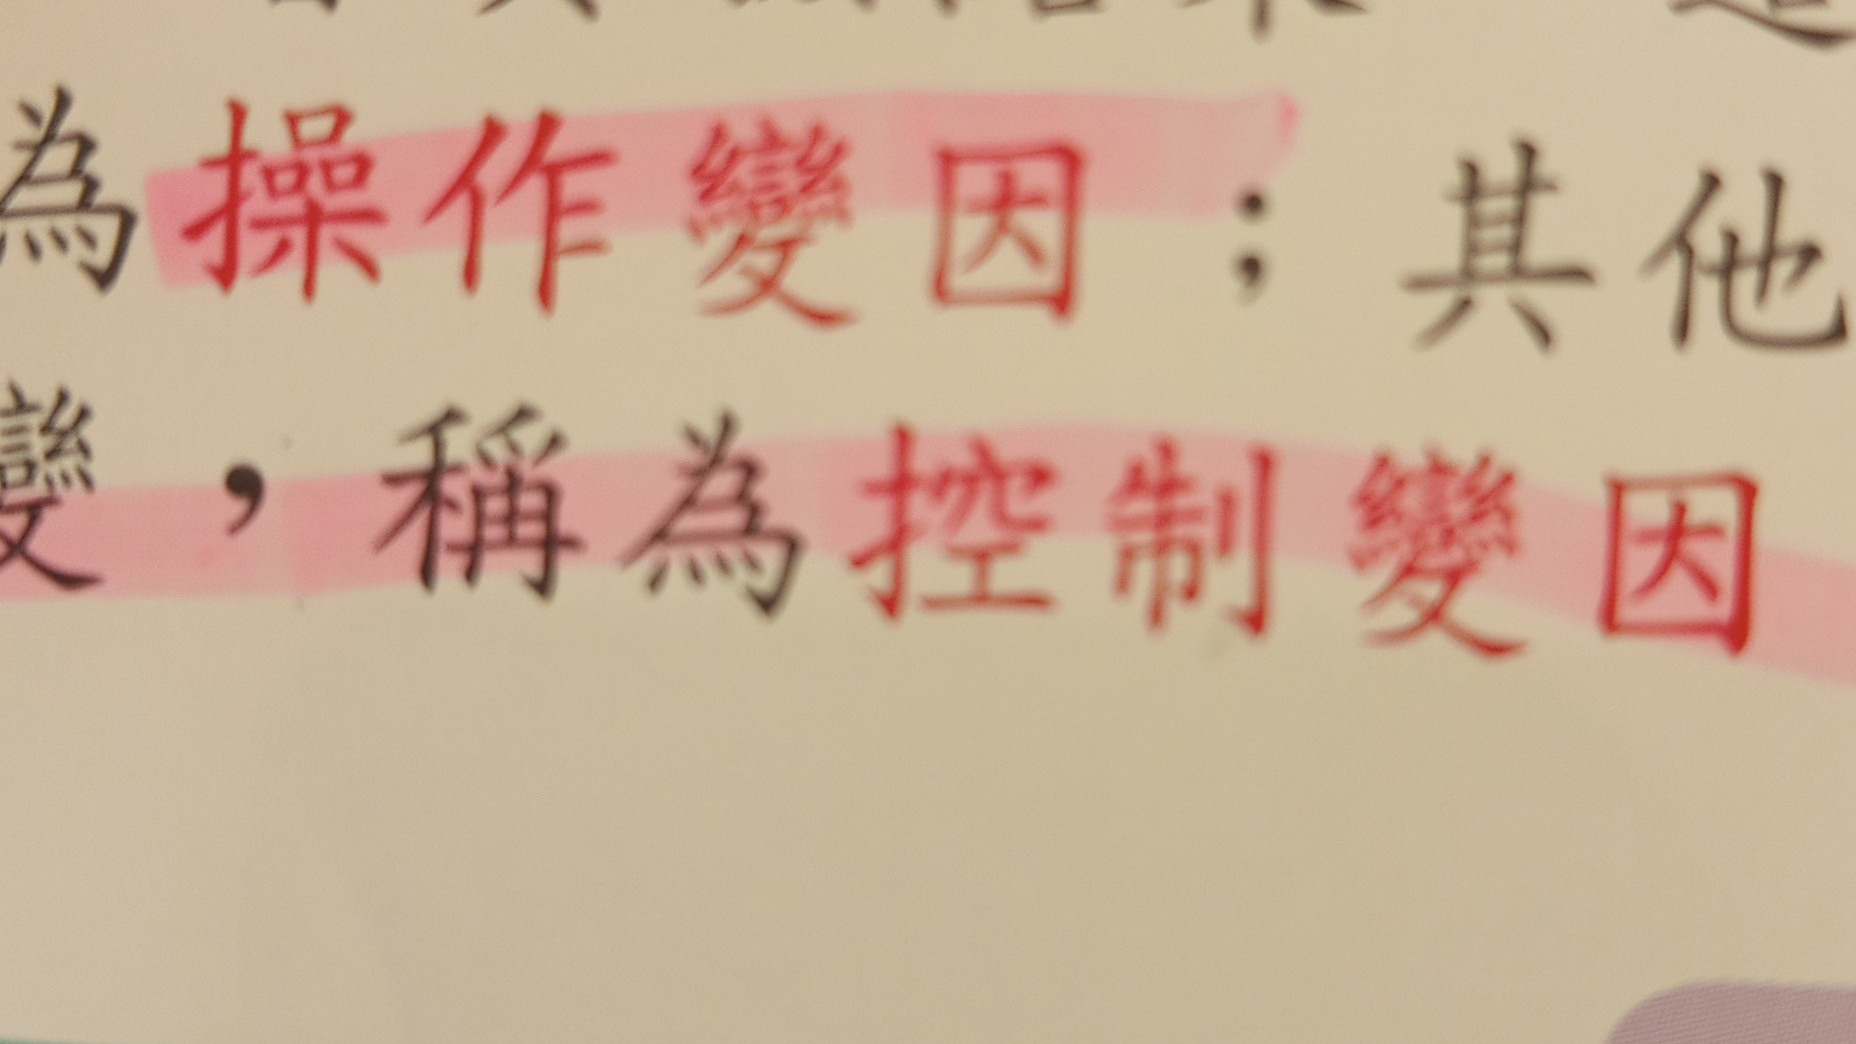 為操作變因；其他
變，稱為控制變因